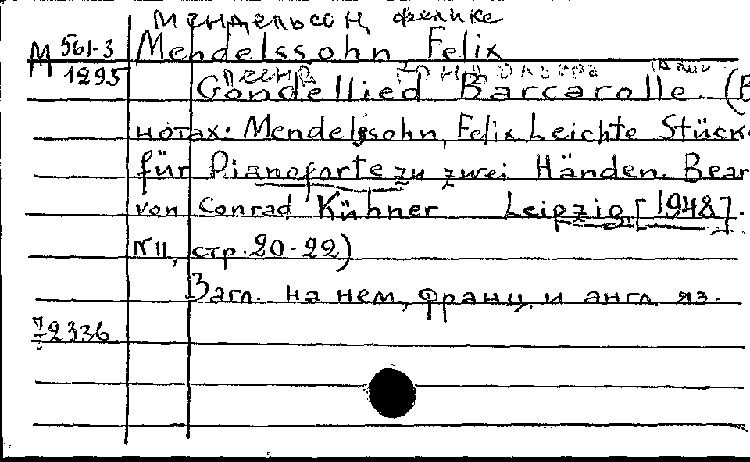 Мендельсон, Феликс
М 561-3 Mendelssohn Felix
1295
Gondellied Barcarolle. (В
нотах: Mendelssohn, Felix Leichte Stücke
für Pianoforte zu zwei Händen. Bear
von Conrad Kühner Leipzig [1948].
N 11, стр. 20-22)
Загл. на нем., франц. и англ. яз.
72336